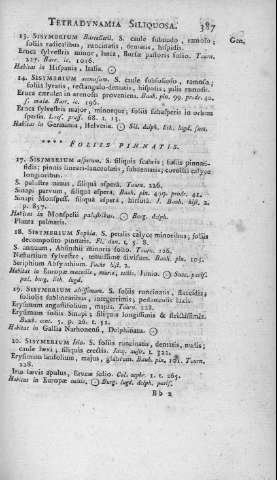 TETRADYNAMIA SILIQUOSA. 387
13. SISYMBRIUM Barrelieri. S. caule subnudo, ramoso; Gen.
foliis radicalibus, runcinatis, dentatis, hispidis.
Eruca sylvestris minor, lutea, Bursæ pastoris folio. Tourn.
227. Barr. ic. 1016.
Habitat in Hispania, Italia.
14. SISYMBRIUM arenosum. S. caule subfolioso, ramoso;
foliis lyratis, rectangulo-dentatis, hispidis; pilis ramosis.
Eruca cærulea in arenosis proveniens. Bauh. pin. 99. prodr. 40.
f. mala. Barr. ic. 196.
Eruca sylvestris major, minorque; foliis subasperis in orbem
sparsis. t. 13.
Habitat in Germania, Helvetia. ☉ Sic. delph. lugd.
**** FOLIIS PINNATIS.
17. SISYMBRIUM asperum. S. siliquis scabris; foliis pinnati-
fidis; pinnis lineari-lanceolatis, subdentatis; corollis calyce
longioribus.
S. palustre minus, siliqua aspera. Tourn. 226.
Sinapi parvum, siliqua aspera. Bauh. pin. 99. prodr. 41.
Sinapi Monspess. siliqua aspera, hirsuta. J. Bauh. hist. 2.
p. 857.
Habitat in Monspelii paludibus. ☉ Burg. delph.
Planta palmaris.
18. SISYMBRIUM Sophia. S. petalis calyce minoribus; foliis
decomposito pinnatis. Fl. dan. t. 528.
S. annuum, Absinthii minoris folio. Tourn. 226.
Nasturtium sylvestre, tenuissime divisum. Bauh. pin. 105.
Seriphium Absynthium. Fuchs hist. 2.
Habitat in Europæ maceriis, muris, tectis. Junio. ☉ parif.
burg. lugd.
19. SISYMBRIUM altissimum. S. foliis runcinatis, flaccidis;
foliolis sublinearibus, integerrimis; pedunculis laxis.
Erysimum angustifolium, majus. Tourn. 228.
Erysimum foliis Sinapi; siliquis longissimis & strictissimis.
Buxb. cent. 5. p. 26. t. 51.
Habitat in Gallia Narbonensi, Delphinatu. ☉
20. SISYMBRIUM Irio. S. foliis runcinatis, dentatis, nudis;
caule lævi; siliquis erectis. Jacq. austr. t. 322.
Erysimum latifolium, majus, glabrum. Bauh. pin. 101. Tourn.
228.
Irio lævis apulus, Erucæ folio. Col. ecphr. 1. t. 265.
Habitat in Europæ ☉ Burg. lugd. delph. parif.
Bb 2